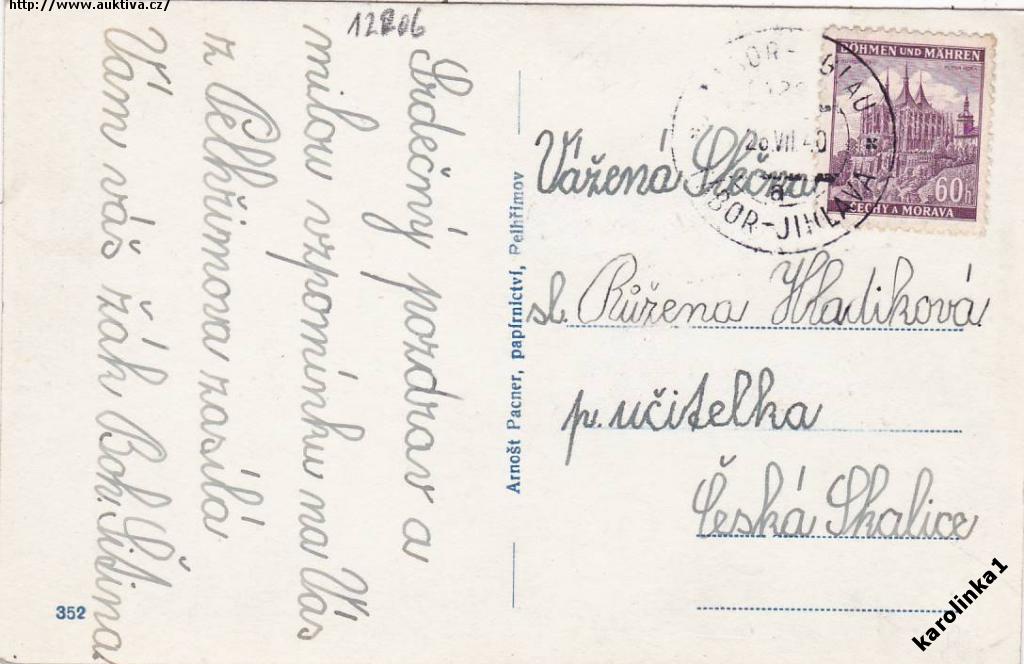 http://www.auktiva.cz/
12206
Srdečný pozdrav a
milou vzpomínku na Vás
z Pelhřimova zasílá
Vám váš žák Boh. Šistina
352
Arnošt Pacner, papírnictví, Pelhřimov
BÖHMEN UND MÄHREN
60h
ČECHY A MORAVA
26.VII.40
TÁBOR-JIHLAVA
Vážená Slečna
sl. Růžena Hladiková
p. učitelka
Česká Skalice
karolinka1